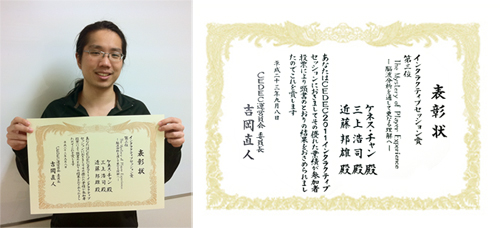 表彰状
インタラクティブセッション賞
第三位
The Mystery of Player Experience
―脳波分析を通して更なる理解へ―
ケネス・チャン 殿
三上 浩司 殿
近藤 邦雄 殿
あなたはCEDEC2011インタラクティブ
セッションにおきましてその優れた業績が参加者
投票により頭書のとおりの結果をおさめられまし
たのでこれを賞します
平成二十三年九月八日
CEDEC運営委員会 委員長
吉岡直人
表彰状
ケネス・チャン 殿
三上 浩司 殿
近藤 邦雄 殿
吉岡直人